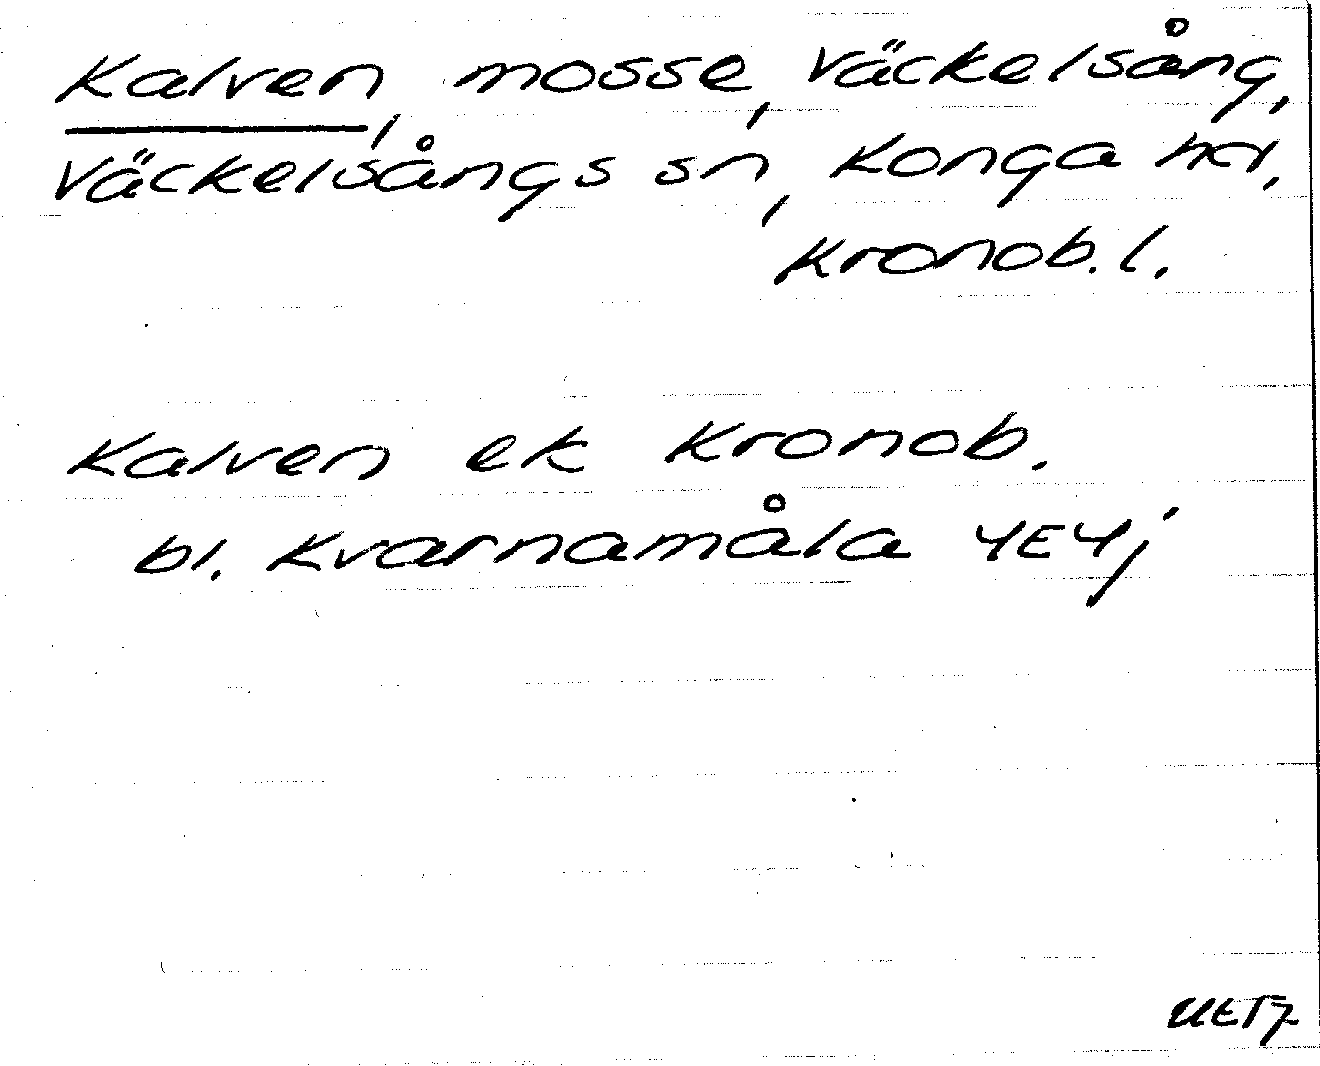 Kalven, mosse, Väckelsång,
Väckelsångs sn, Konga hd,
Kronob. l.
Kalven ek Kronob.
bl. Kvarnamåla 4E4j